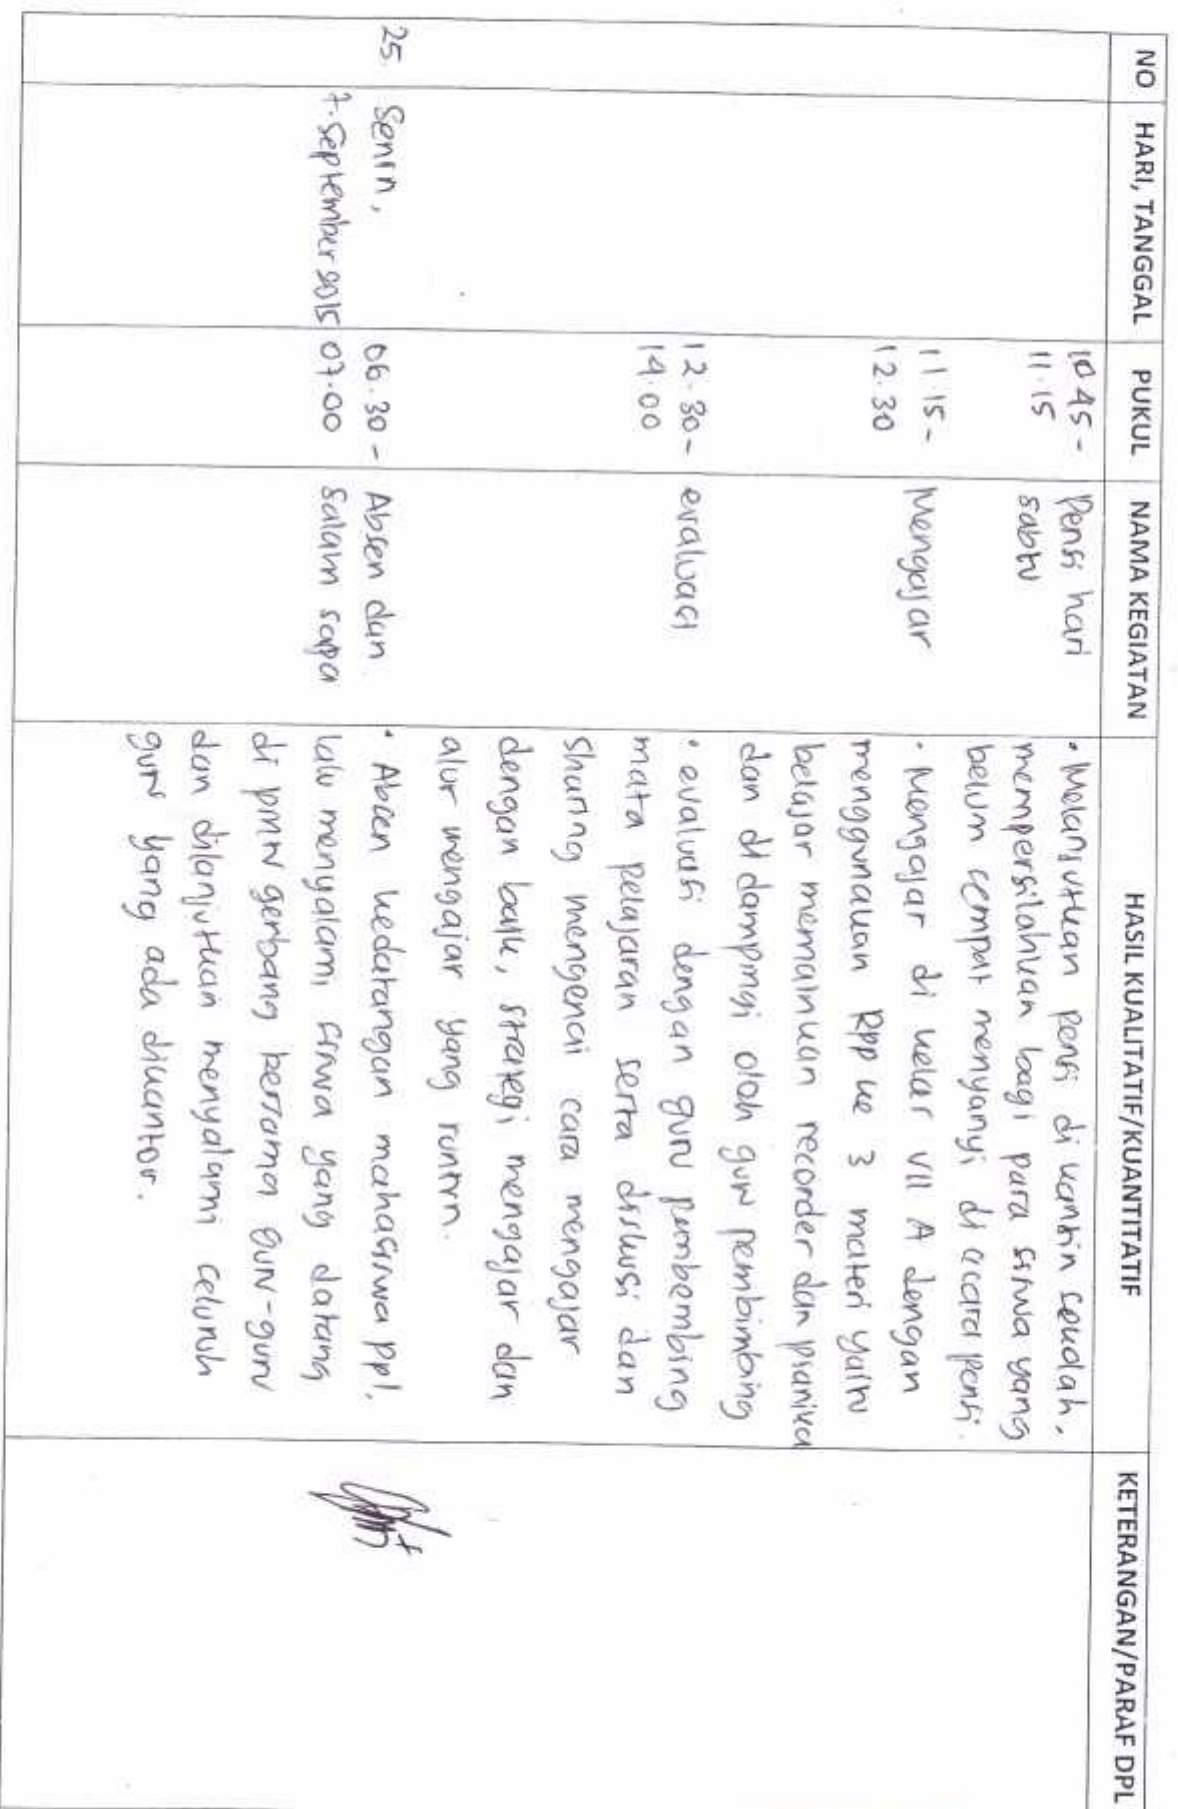 NO HARI, TANGGAL PUKUL NAMA KEGIATAN HASIL KUALITATIF/KUANTITATIF KETERANGAN/PARAF DPL
10.45 - Pensi hari • Melanjutkan pensi di kantin sekolah,
11.15 sabtu mempersilahkan bagi para siswa yang
belum sempat menyanyi di acara pensi.
11.15 - Mengajar • Mengajar di kelas VII A dengan
12.30 menggunakan RPP ke 3 materi yaitu
belajar memainkan recorder dan pianika
dan di dampingi oleh guru pembimbing
12.30 - evaluasi • evaluasi dengan guru pembembing
14.00 mata pelajaran serta diskusi dan
sharing mengenai cara mengajar
dengan baik, strategi mengajar dan
alur mengajar yang runtun.
25. Senin, 06.30 - Absen dan • Absen kedatangan mahasiswa ppl,
7. September 2015 07.00 salam sapa lalu menyalami siswa yang datang
di pintu gerbang bersama guru-guru
dan dilanjutkan menyalami seluruh
guru yang ada dikantor.